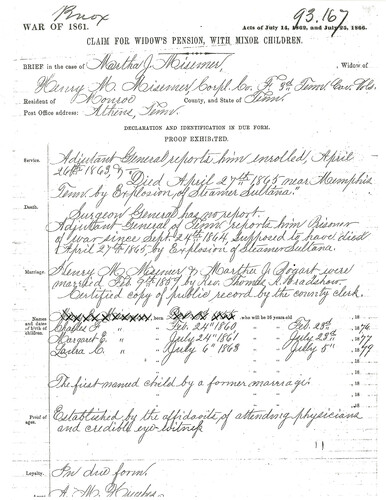 Knox
93.167
WAR OF 1861.
Acts of July 14, 1862, and July 25, 1866.
CLAIM FOR WIDOW'S PENSION, WITH MINOR CHILDREN.
BRIEF in the case of Martha J. Misemer, Widow of
Henry M. Misemer, Corpl. Co. F 3rd Tenn Cav. Vols.
Resident of Monroe County, and State of Tenn.
Post Office address: Athens, Tenn.
DECLARATION AND IDENTIFICATION IN DUE FORM.
PROOF EXHIBITED.
Service. Adjutant General reports him enrolled, April
26th 1863, & "Died April 27th 1865 near Memphis
Tenn by Explosion of Steamer Sultana."
Death. Surgeon General has no report.
Adjutant General of Tenn reports him Prisoner
of war since Sept. 24th 1864, Supposed to have died
April 27th 1865, by Explosion of Steamer Sultana
Marriage. Henry M. Misemer & Martha J. Bogart were
married Feb. 9th 1859 by Rev. Thomas K. Bradshaw.
Certified copy of public record by the county clerk.
Names and dates of birth of children.
who will be 16 years old
Charles F. " Feb. 24th 1860, Feb. 23rd, 1876
Margaret E. " July 24th 1861 July 23rd, 1877
Laura C. " July 6th 1863 July 5th, 1879
The first named child by a former marriage
Proof of ages. Established by the affidavits of attending physicians
and credible eye-witness
Loyalty. In due form.
A. M. Hughes